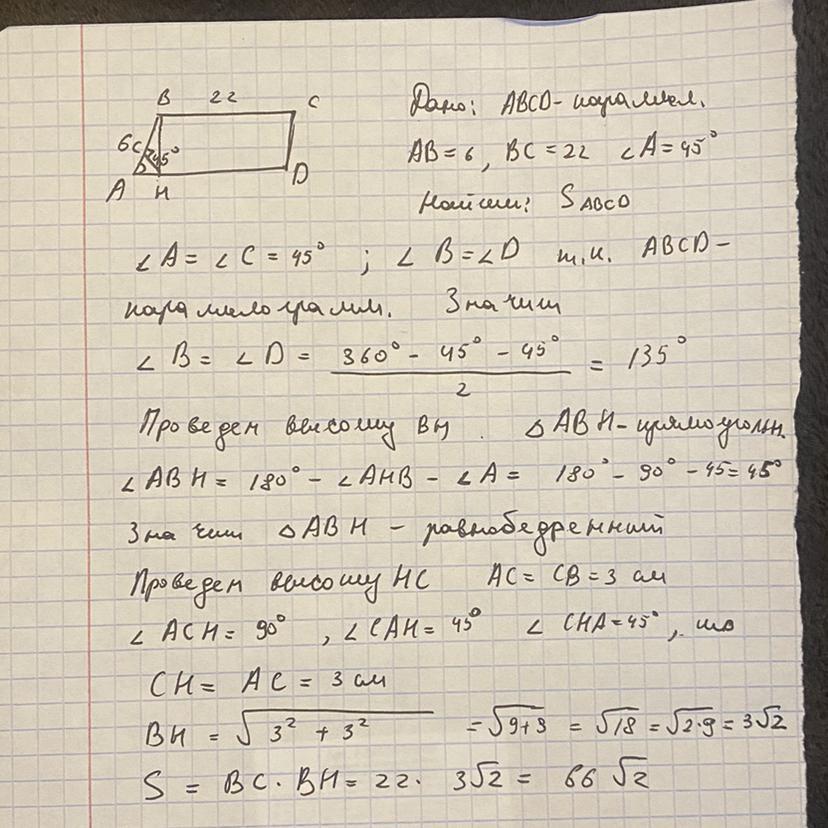 B 22 C
6 C 45°
A H D
Дано: ABCD - параллел.
AB = 6, BC = 22 ∠A = 45°
Найти: S ABCD
∠A = ∠C = 45° ; ∠B = ∠D т.к. ABCD -
параллелограмм. Значит
∠B = ∠D = (360° - 45° - 45°) / 2 = 135°
Проведем высоту BH. △ABH - прямоугольн.
∠ABH = 180° - ∠AHB - ∠A = 180° - 90° - 45 = 45°
Значит △ABH - равнобедренный
Проведем высоту HC AC = CB = 3 см
∠ACH = 90°, ∠CAH = 45° ∠CHA = 45°, то
CH = AC = 3 см
BH = √(3² + 3²) = √(9+9) = √18 = √(2·9) = 3√2
S = BC · BH = 22 · 3√2 = 66√2